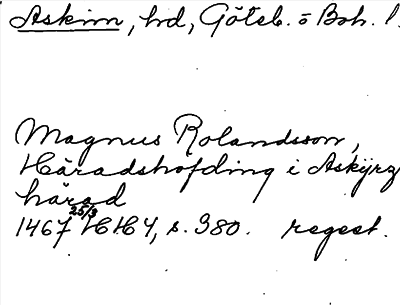 Askim, hd, Göteb. o Boh. l.
Magnus Rolandsson,
Häradshöfding i Askÿrz
härad
1467 25/3 HH4, s. 380. regest.